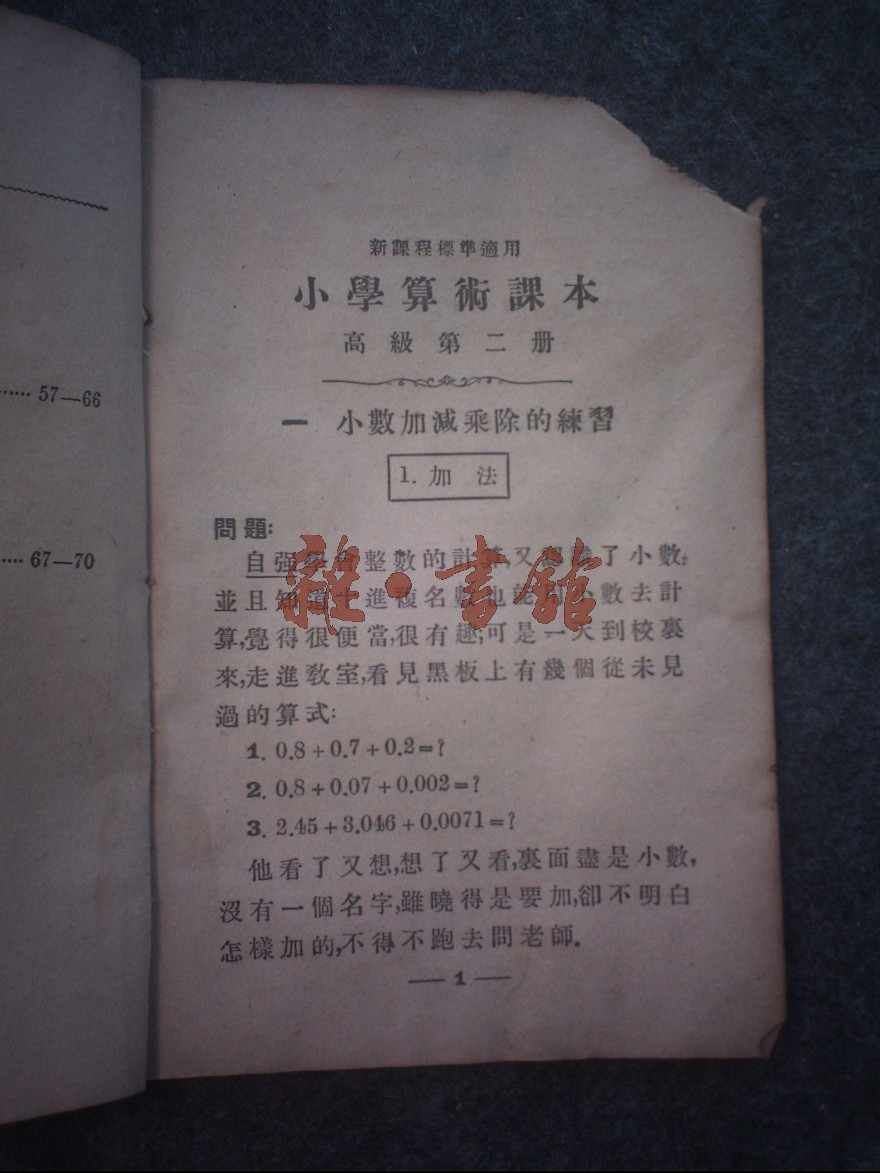 57—66
67—70
新課程標準適用
小學算術課本
高級第二册
一 小數加減乘除的練習
1. 加法
問題:
自强學會整數的計算,又認識了小數;
並且知道十進複名數也能用小數去計
算,覺得很便當,很有趣;可是一天到校裏
來,走進敎室,看見黑板上有幾個從未見
過的算式:
1. 0.8+0.7+0.2=?
2. 0.8+0.07+0.002=?
3. 2.45+3.046+0.0071=?
他看了又想,想了又看,裏面盡是小數,
沒有一個名字,雖曉得是要加,卻不明白
怎樣加的,不得不跑去問老師.
— 1 —
雜·書館